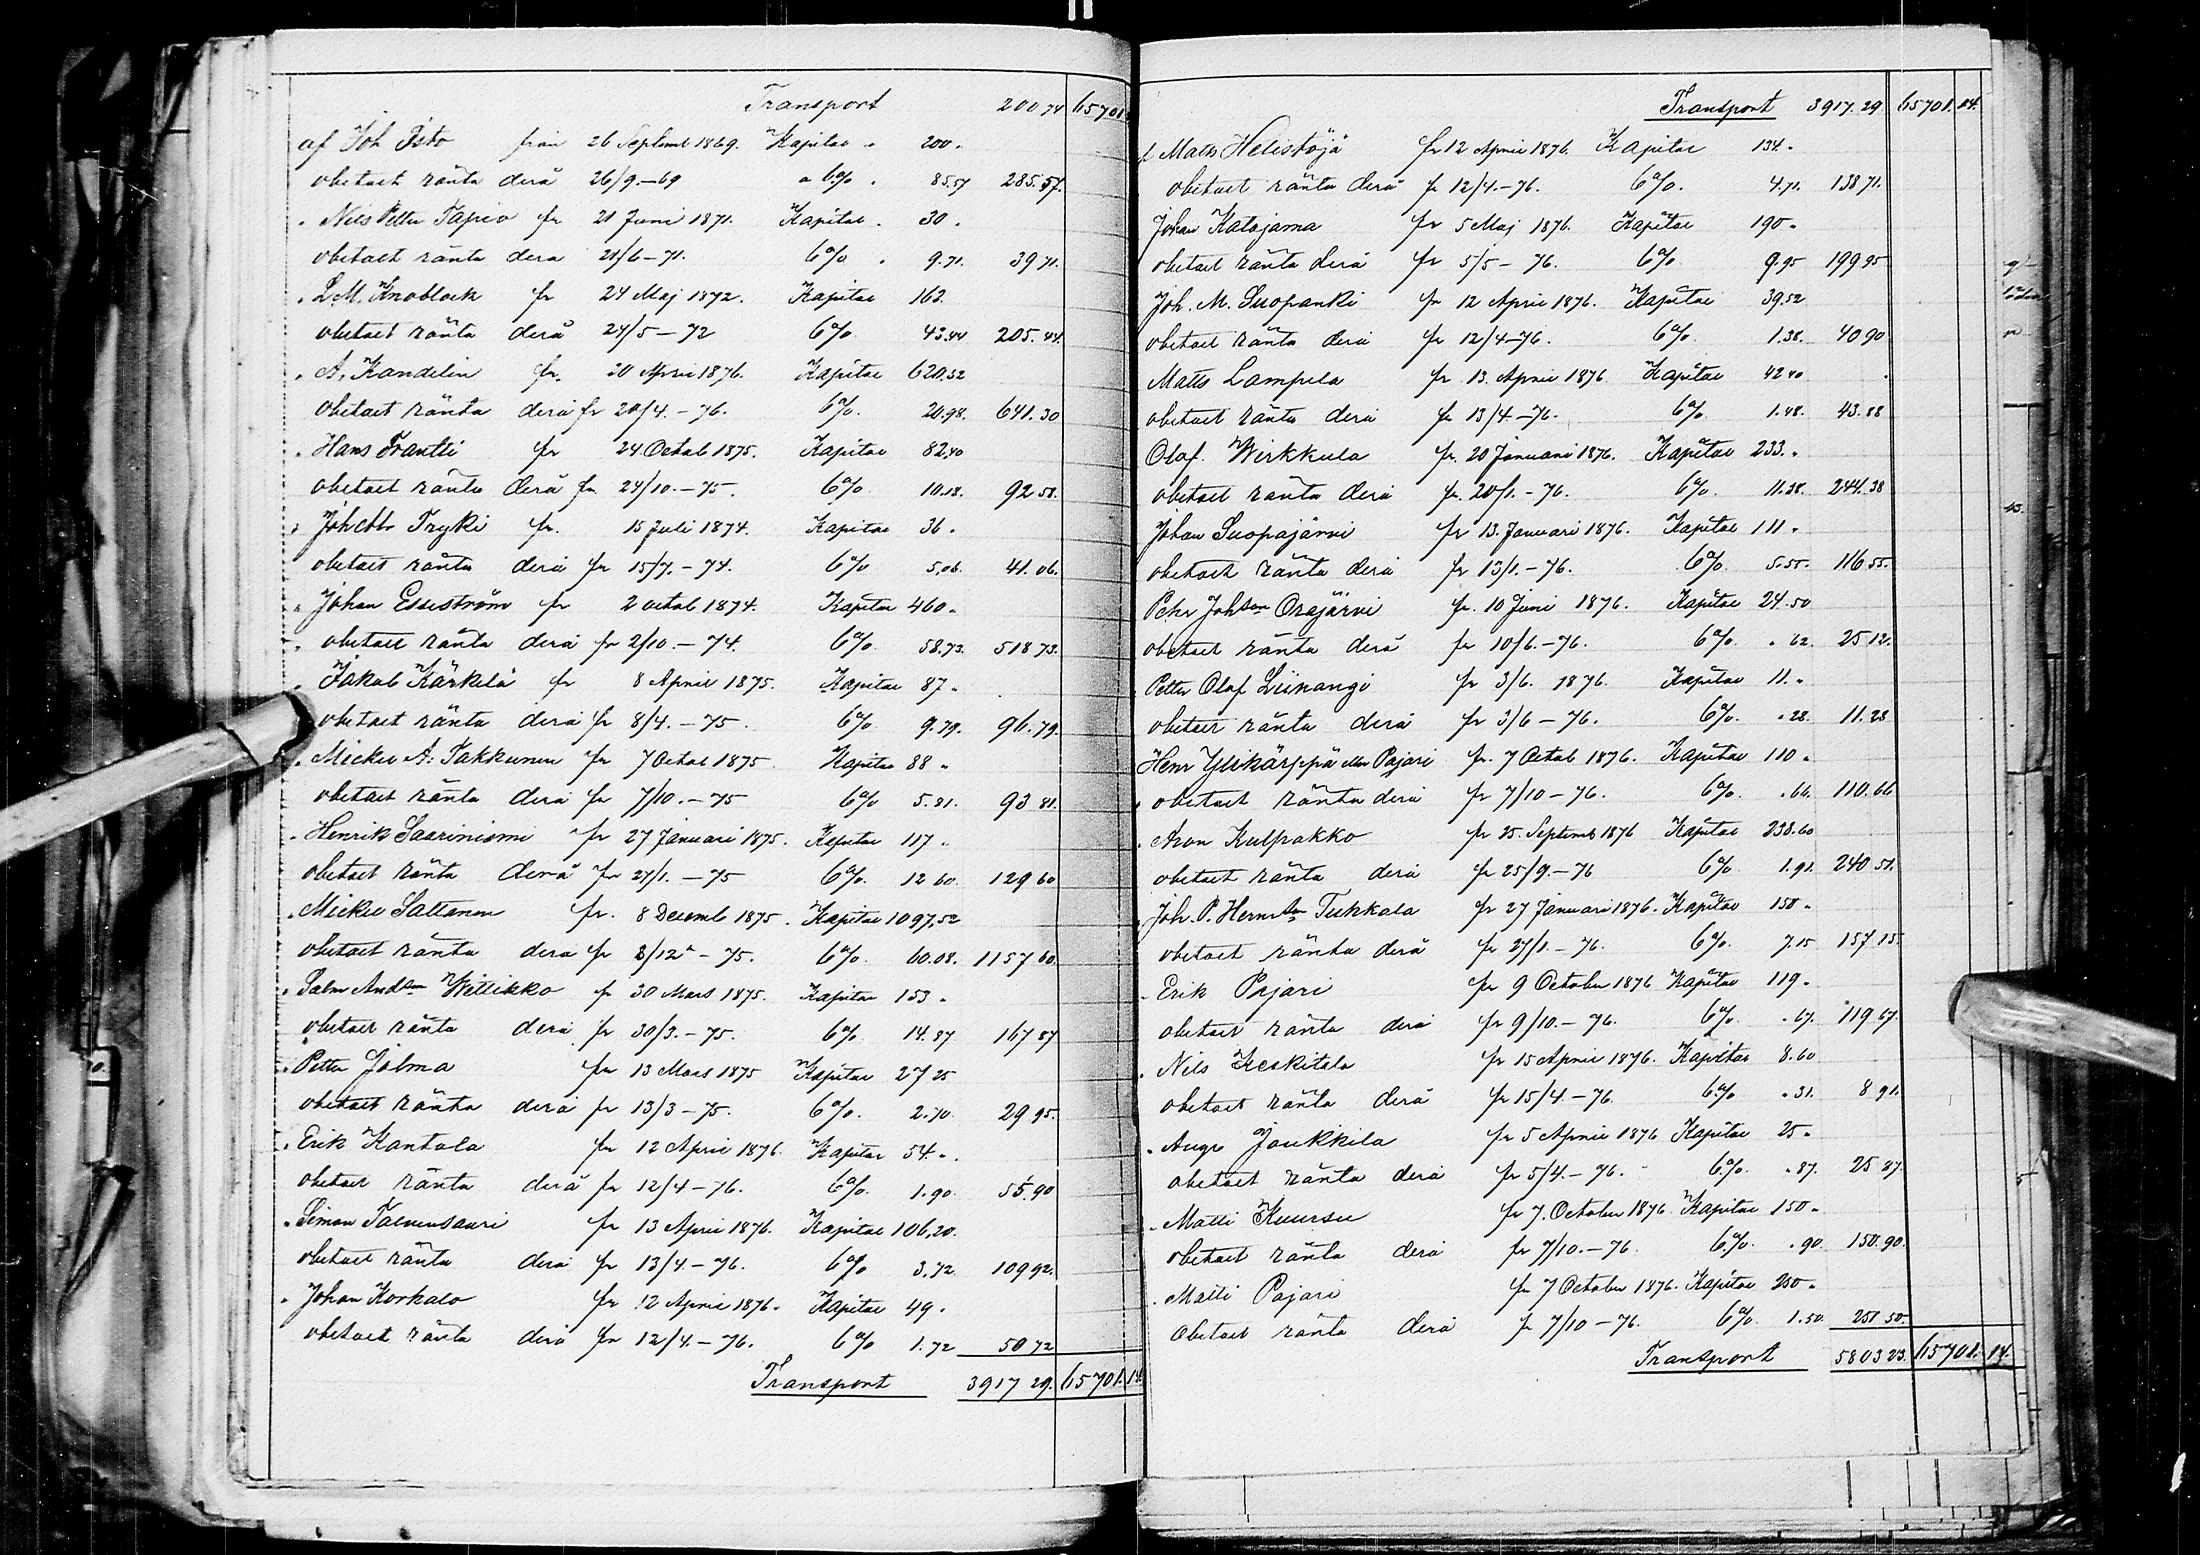 Transport 200 74 65701
af Joh Isto från 26 Septemb 1869. Kapital " 200 "
obetalt ränta derå 26/9.-69 " 6% " 85.57 285.57.
" Nils Petter Tapio fr 21 Juni 1871. Kapital " 30 "
obetalt ränta derå 21/6-71. 6% " 9.71. 39 71.
" L. M. Knoblock fr 24 Maj 1872. Kapital 162.
obetalt ränta derå 24/5-72 6% 43.44 205.44.
" A. Kandelin fr. 20 April 1876. Kapital 620,52
obetalt ränta derå fr 20/4.-76. 6%. 20.98. 641.30
" Hans Frantti fr 24 Octob 1875. Kapital 82.40
obetalt ränta derå fr 24/10.-75. 6% 10.18. 92 58.
" Joh Tryki fr. 15 Juli 1874. Kapital 36 "
obetalt ränta derå fr 15/7.-74. 6% 5.06. 41.06.
" Johan Esseström fr 2 octob 1874. Kapital 460 "
" obetalt ränta derå fr 2/10.-74. 6% 58.73. 518 73.
" Jakob Kärkelä fr 8 April 1875. Kapital 87 "
obetalt ränta derå fr 8/4.-75. 6% 9.79. 96.79.
" Mickel A. Takkunen fr 7 Octob 1875 Kapital 88 "
obetalt ränta derå fr 7/10.-75 6% 5.81. 93 81.
" Henrik Saariniemi fr 27 Januari 1875. Kapital 117 "
obetalt ränta derå fr 27/1.-75 6%. 12 60. 129 60
" Mickel Saltanen fr. 8 Decemb 1875. Kapital 1097,52
obetalt ränta derå fr 8/12-75. 6% 60.08. 1157 60.
" Salm Andsson Willikko fr 30 Mars 1875. Kapital 153 "
obetalt ränta derå fr 30/3.-75. 6% 14.87 167 87
" Petter Jolma fr 13 Mars 1875 Kapital 27 25
obetalt ränta derå fr 13/3-75. 6%. 2.70. 29 95.
" Erik Kantola fr 12 April 1876. Kapital 54 "
obetalt ränta derå fr 12/4-76. 6%. 1.90. 55.90
" Simon Talvensaari fr 13 April 1876. Kapital 106,20.
obetalt ränta derå fr 13/4.-76. 6% 3.72. 109 92.
" Johan Korkalo fr 12 April 1876. Kapital 49 "
obetalt ränta derå fr 12/4.-76. 6% 1.72 50 72
Transport 3917 29. 65701.14.
Transport 3917.29 65701.14.
Matts Helistöjä fr 12 April 1876. Kapital 134 "
obetalt ränta derå fr 12/4.-76. 6%. 4.71. 138 71.
Johan Katajama fr 5 Maj 1876. Kapital 190 "
obetalt ränta derå fr 5/5-76. 6% 9.95 199 95
Joh. M. Suopanki fr 12 April 1876. Kapital 39.52
obetalt ränta derå fr 12/4-76. 6%. 1.38. 40 90
Matts Lampela fr 13. April 1876 Kapital 42 40
obetalt ränta derå fr 13/4-76. 6% 1.48. 43.88
Olof Wirkkula fr. 20 Januari 1876. Kapital 233. "
obetalt ränta derå fr. 20/1.-76. 6%. 11.38. 244.38
Johan Suopajärvi fr 13. Januari 1876. Kapital 111 "
obetalt ränta derå fr 13/1.-76. 6% 5.55. 116 55.
Petr Johsson Orajärvi fr. 10 Juni 1876. Kapital 24.50
obetalt ränta derå fr 10/6.-76. 6%. " 62. 25 12.
Petter Olof Liinangi fr 3/6. 1876. Kapital 11. "
obetalt ränta derå fr 3/6-76. 6%. " 28. 11.28
Henr Ylikärppä eller Pajari fr. 7 Octob 1876. Kapital 110 "
" obetalt ränta derå fr 7/10-76. 6% " 66. 110.66
" Aron Kulpakko fr 25. Septemb 1876 Kapital 238.60
obetalt ränta derå fr 25/9.-76 6% 1.91. 240 51.
Joh. P. Hermsson Tukkala fr 27 Januari 1876. Kapital 150 "
obetalt ränta derå fr 27/1.-76. 6%. 7.15 157 15.
" Erik Pajari fr 9 October 1876 Kapital 119 "
obetalt ränta derå fr 9/10.-76. 6%. " 67. 119 67.
" Nils Keskitalo fr 15 April 1876. Kapital 8.60
obetalt ränta derå fr 15/4.-76. 6% " 31. 8 91.
" Aug Joukkila fr 5 April 1876 Kapital 25 "
obetalt ränta derå fr 5/4.-76. 6%. " 87. 25 87.
" Matti Kuursu fr 7. October 1876 Kapital 150 "
obetalt ränta derå fr 7/10.-76. 6%. " 90. 150.90.
" Matti Pajari fr 7 October 1876. Kapital 250 "
Obetalt ränta derå fr 7/10-76. 6% 1.50. 251 50.
Transport 5803 23. 65701. 14.